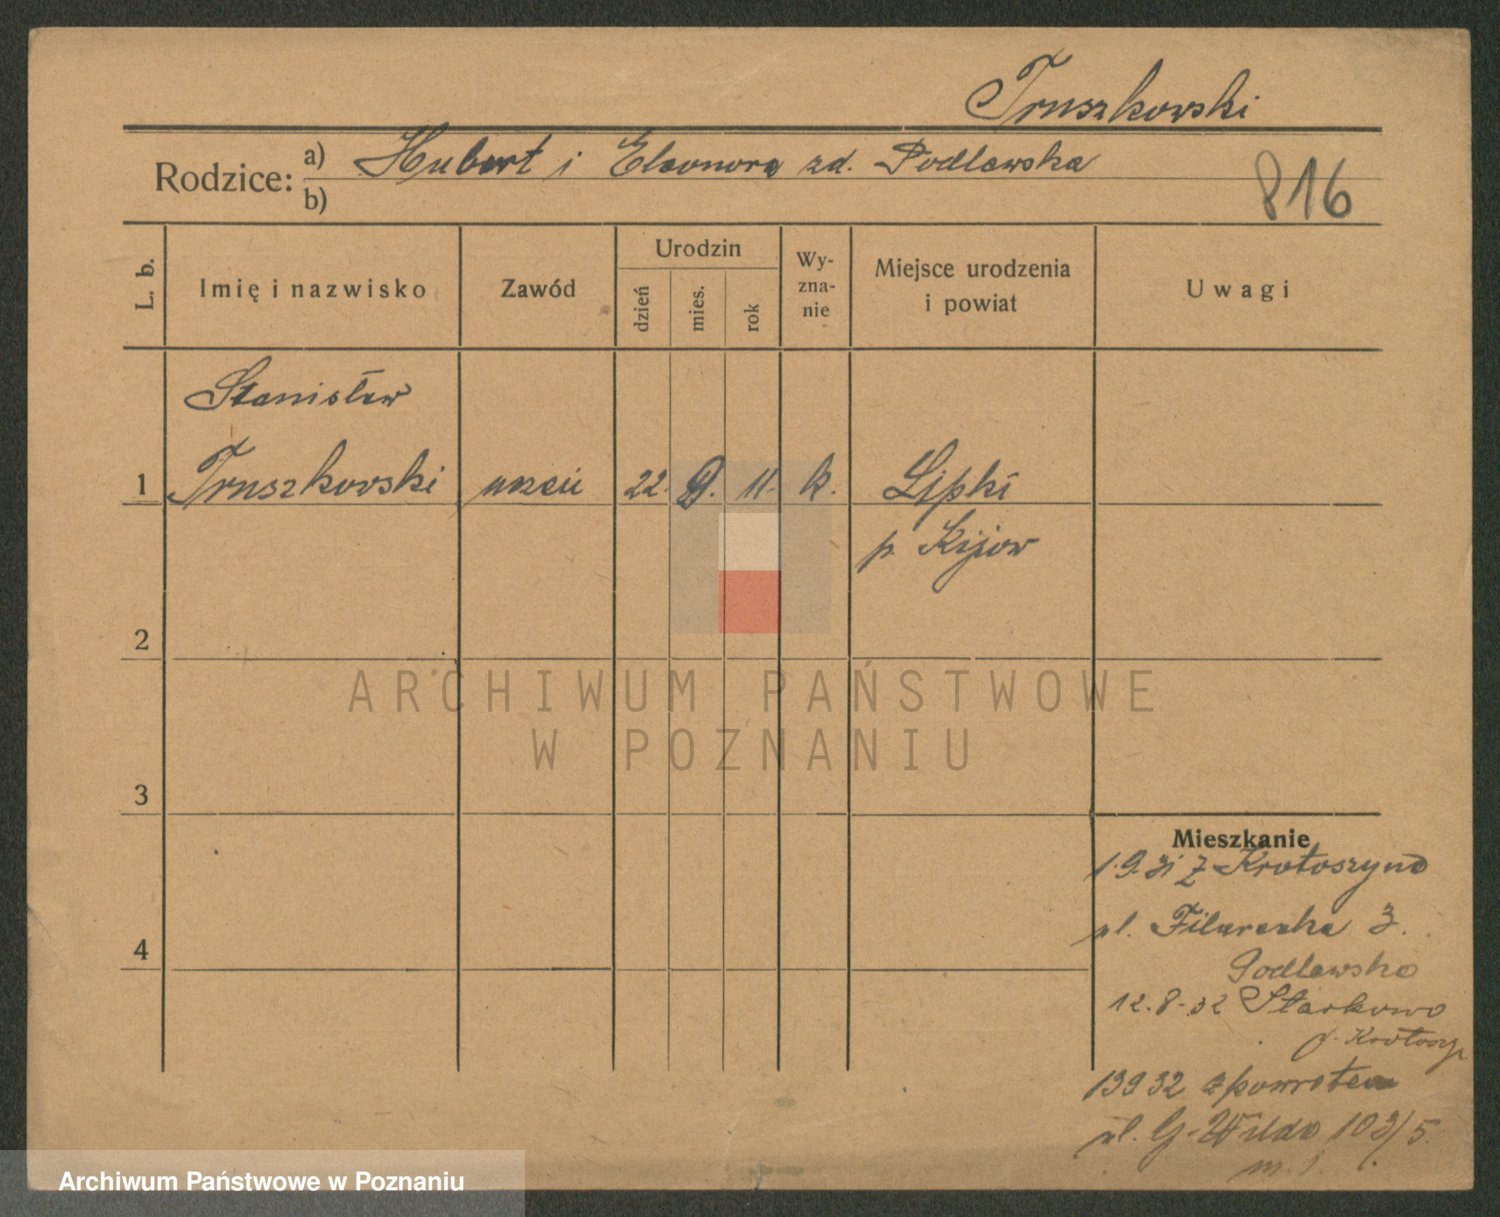 Truszkowski
Rodzice: a) Hubert i Eleonora zd. Podlewska
b)
816
L. b. Imię i nazwisko Zawód Urodzin dzień mies. rok Wy-zna-nie Miejsce urodzenia i powiat Uwagi
Stanisław
1 Truszkowski uczeń 22. 9. 11. k. Lipki
p. Kijow
2
ARCHIWUM PAŃSTWOWE
W POZNANIU
3
Mieszkanie
1.9.31 z Krotoszyna
ul. Filarecka 3.
Podlewska
4
12.8-32 Starkowo
p. Krotoszy
13932 zpowrotem
ul. G-Wilda 103/5.
m.
Archiwum Państwowe w Poznaniu